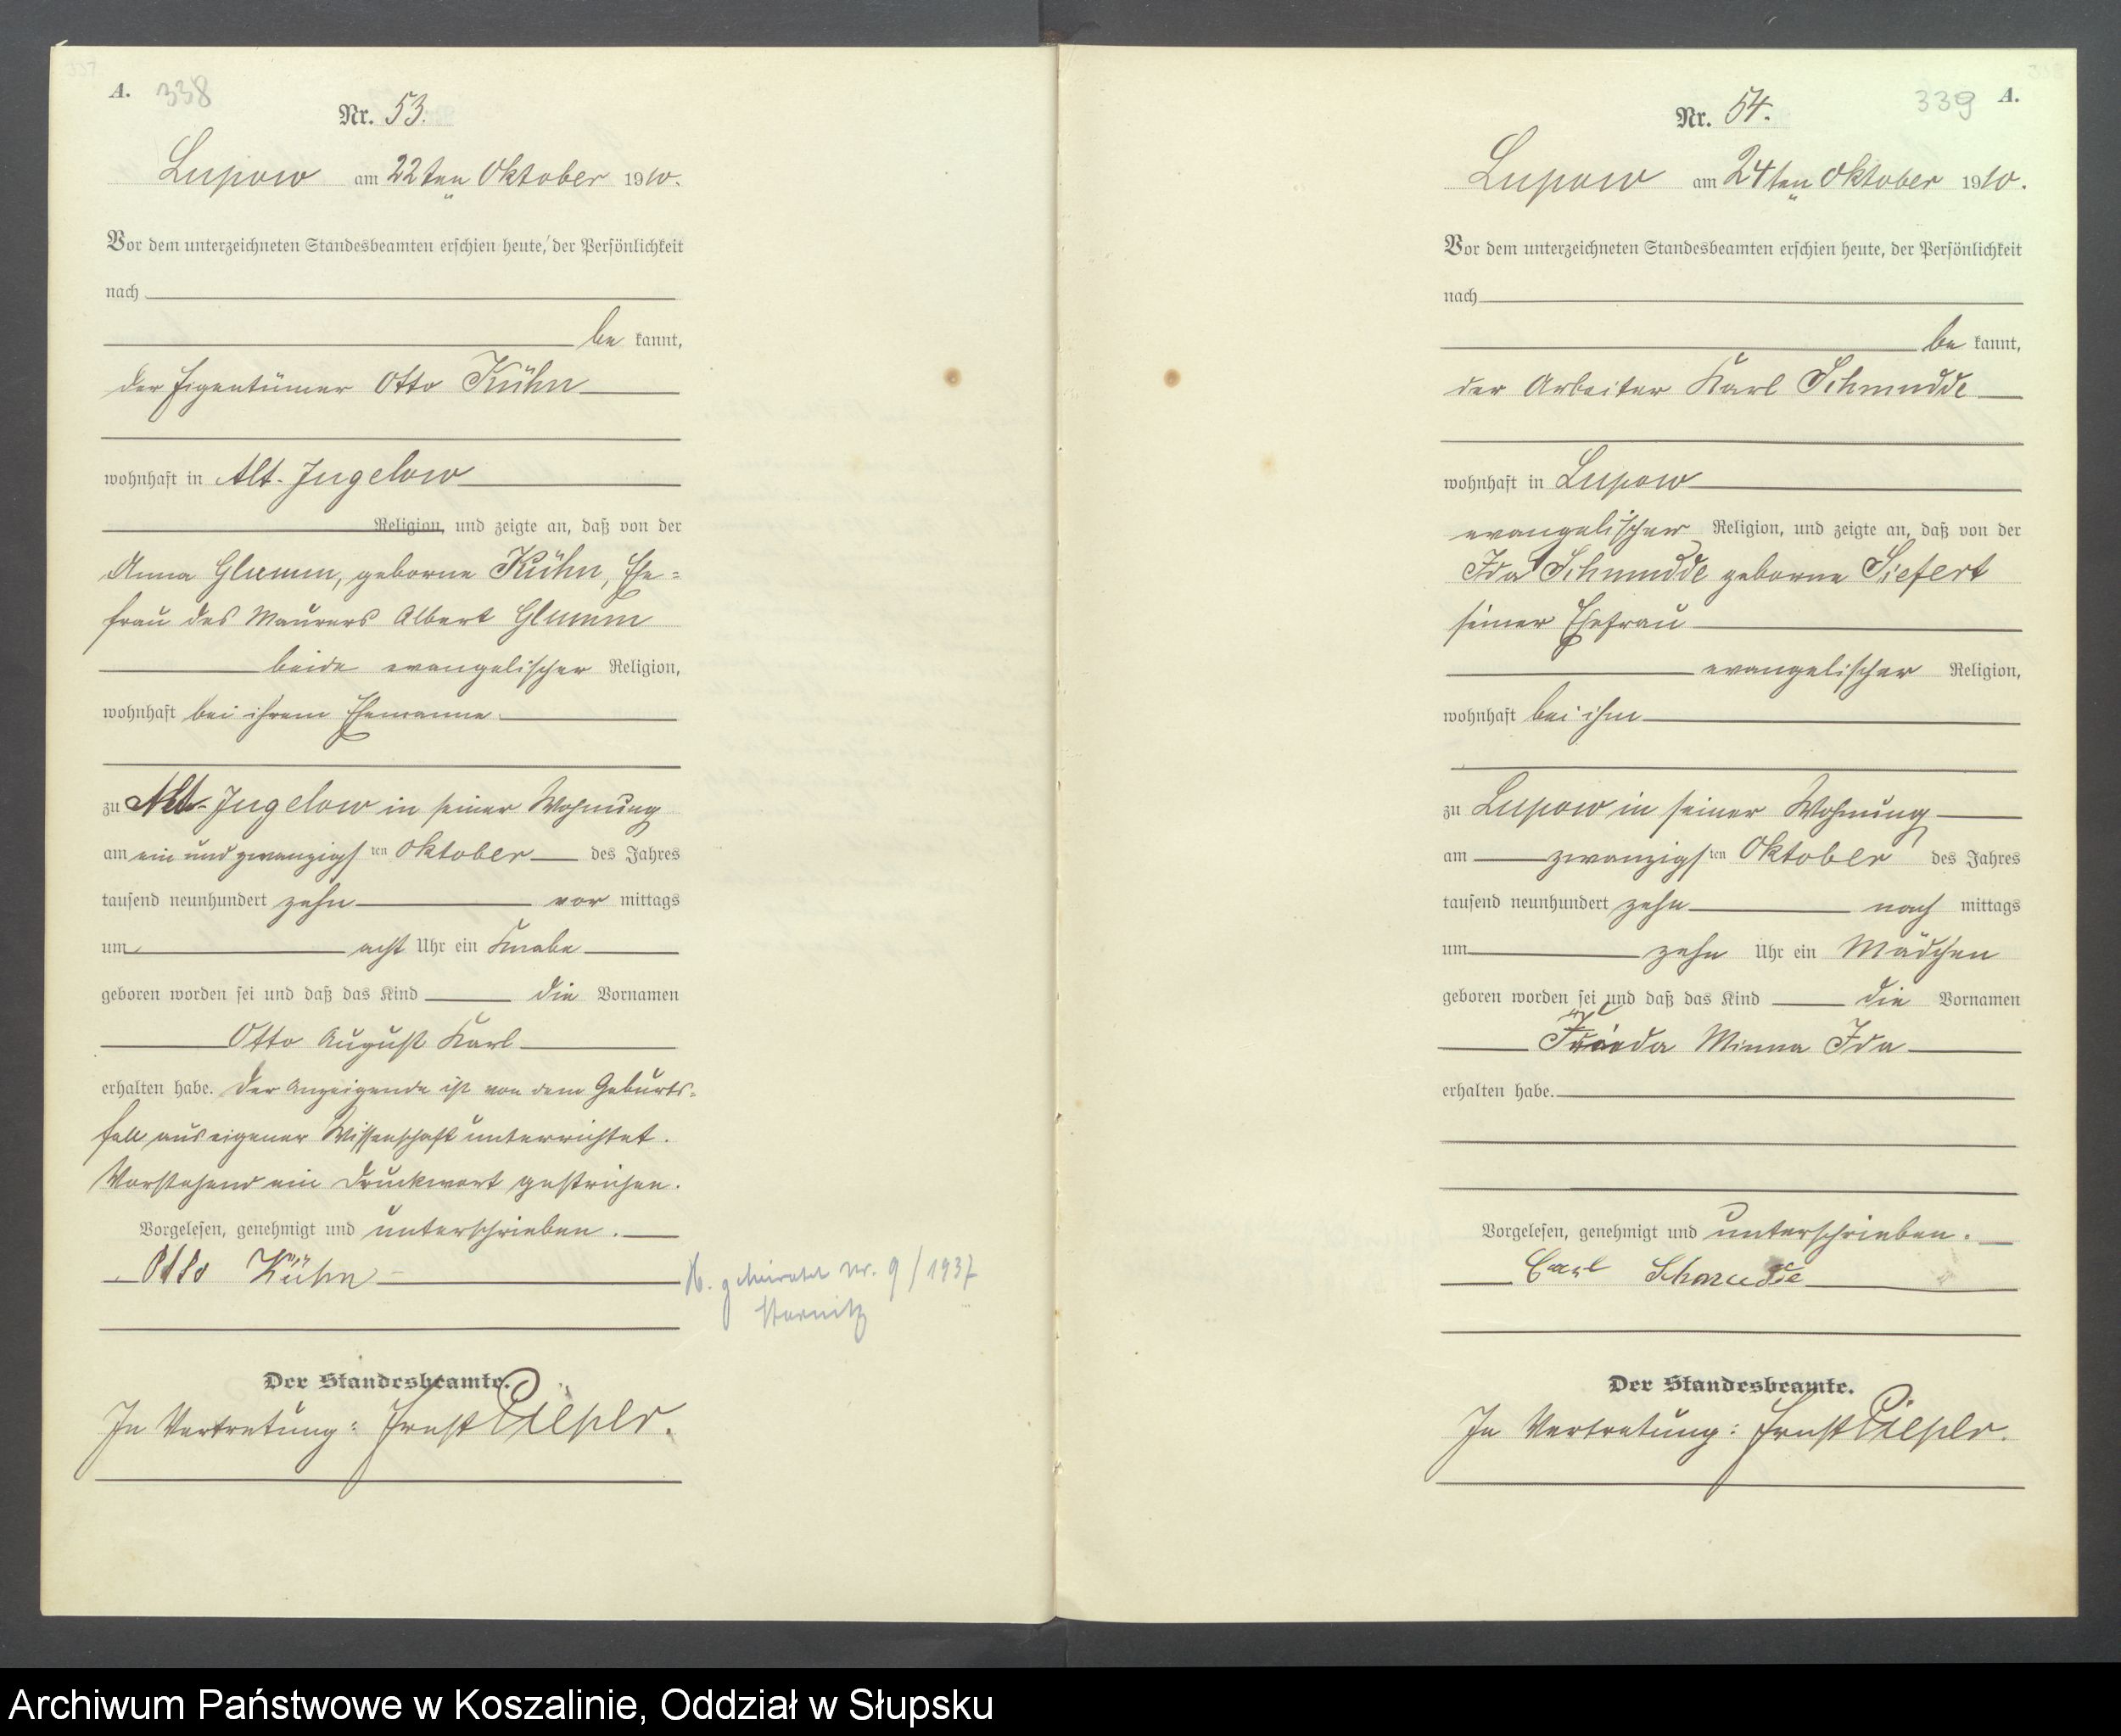 A. 338
Nr. 53.
Lupow am 22ten Oktober 1910.
Vor dem unterzeichneten Standesbeamten erschien heute, der Persönlichkeit
nach
be kannt,
der Eigentümer Otto Kühn
wohnhaft in Alt-Jugelow
Religion, und zeigte an, daß von der
Anna Glumm, geborne Kühn, Ehe-
frau des Maurers Albert Glumm
beide evangelischer Religion,
wohnhaft bei ihrem Ehemanne
zu Alt-Jugelow in seiner Wohnung
am ein und zwanzigsten Oktober des Jahres
tausend neunhundert zehn vor mittags
um acht Uhr ein Knabe
geboren worden sei und daß das Kind die Vornamen
Otto August Karl
erhalten habe. Der Anzeigende ist von dem Geburts-
fall aus eigener Wissenschaft unterrichtet.
Vorstehend ein Druckwort gestrichen.
Vorgelesen, genehmigt und unterschrieben.
Otto Kühn
geheiratet Nr. 9/1937
Der Standesbeamte.
In Vertretung: Ernst
339 A.
Nr. 54.
Lupow am 24ten Oktober 1910.
Vor dem unterzeichneten Standesbeamten erschien heute, der Persönlichkeit
nach
be kannt,
der Arbeiter Karl Schmudde
wohnhaft in Lupow
evangelischer Religion, und zeigte an, daß von der
Ida Schmudde geborne Siefert
seiner Ehefrau
evangelischer Religion,
wohnhaft bei ihm
zu Lupow in seiner Wohnung
am zwanzigsten Oktober des Jahres
tausend neunhundert zehn nach mittags
um zehn Uhr ein Mädchen
geboren worden sei und daß das Kind die Vornamen
Minna Ida
erhalten habe.
Vorgelesen, genehmigt und unterschrieben.
Carl Schmudde
Der Standesbeamte.
In Vertretung: Ernst
Archiwum Państwowe w Koszalinie, Oddział w Słupsku